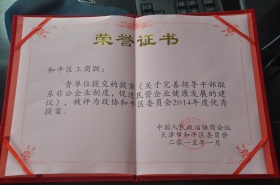 荣誉证书
和平区工商联:
贵单位提交的提案《关于完善领导干部联
系非公企业制度,促进民营企业健康发展的建
议》,被评为政协和平区委员会2014年度优秀
提案。
中国人民政治协商会议
天津市和平区委员会
二〇一五年一月